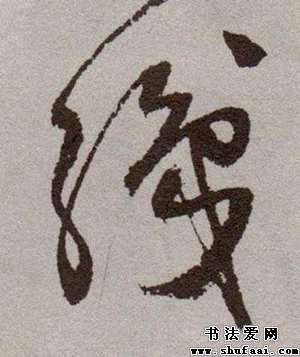 織
书法爱网
www.shufaai.com